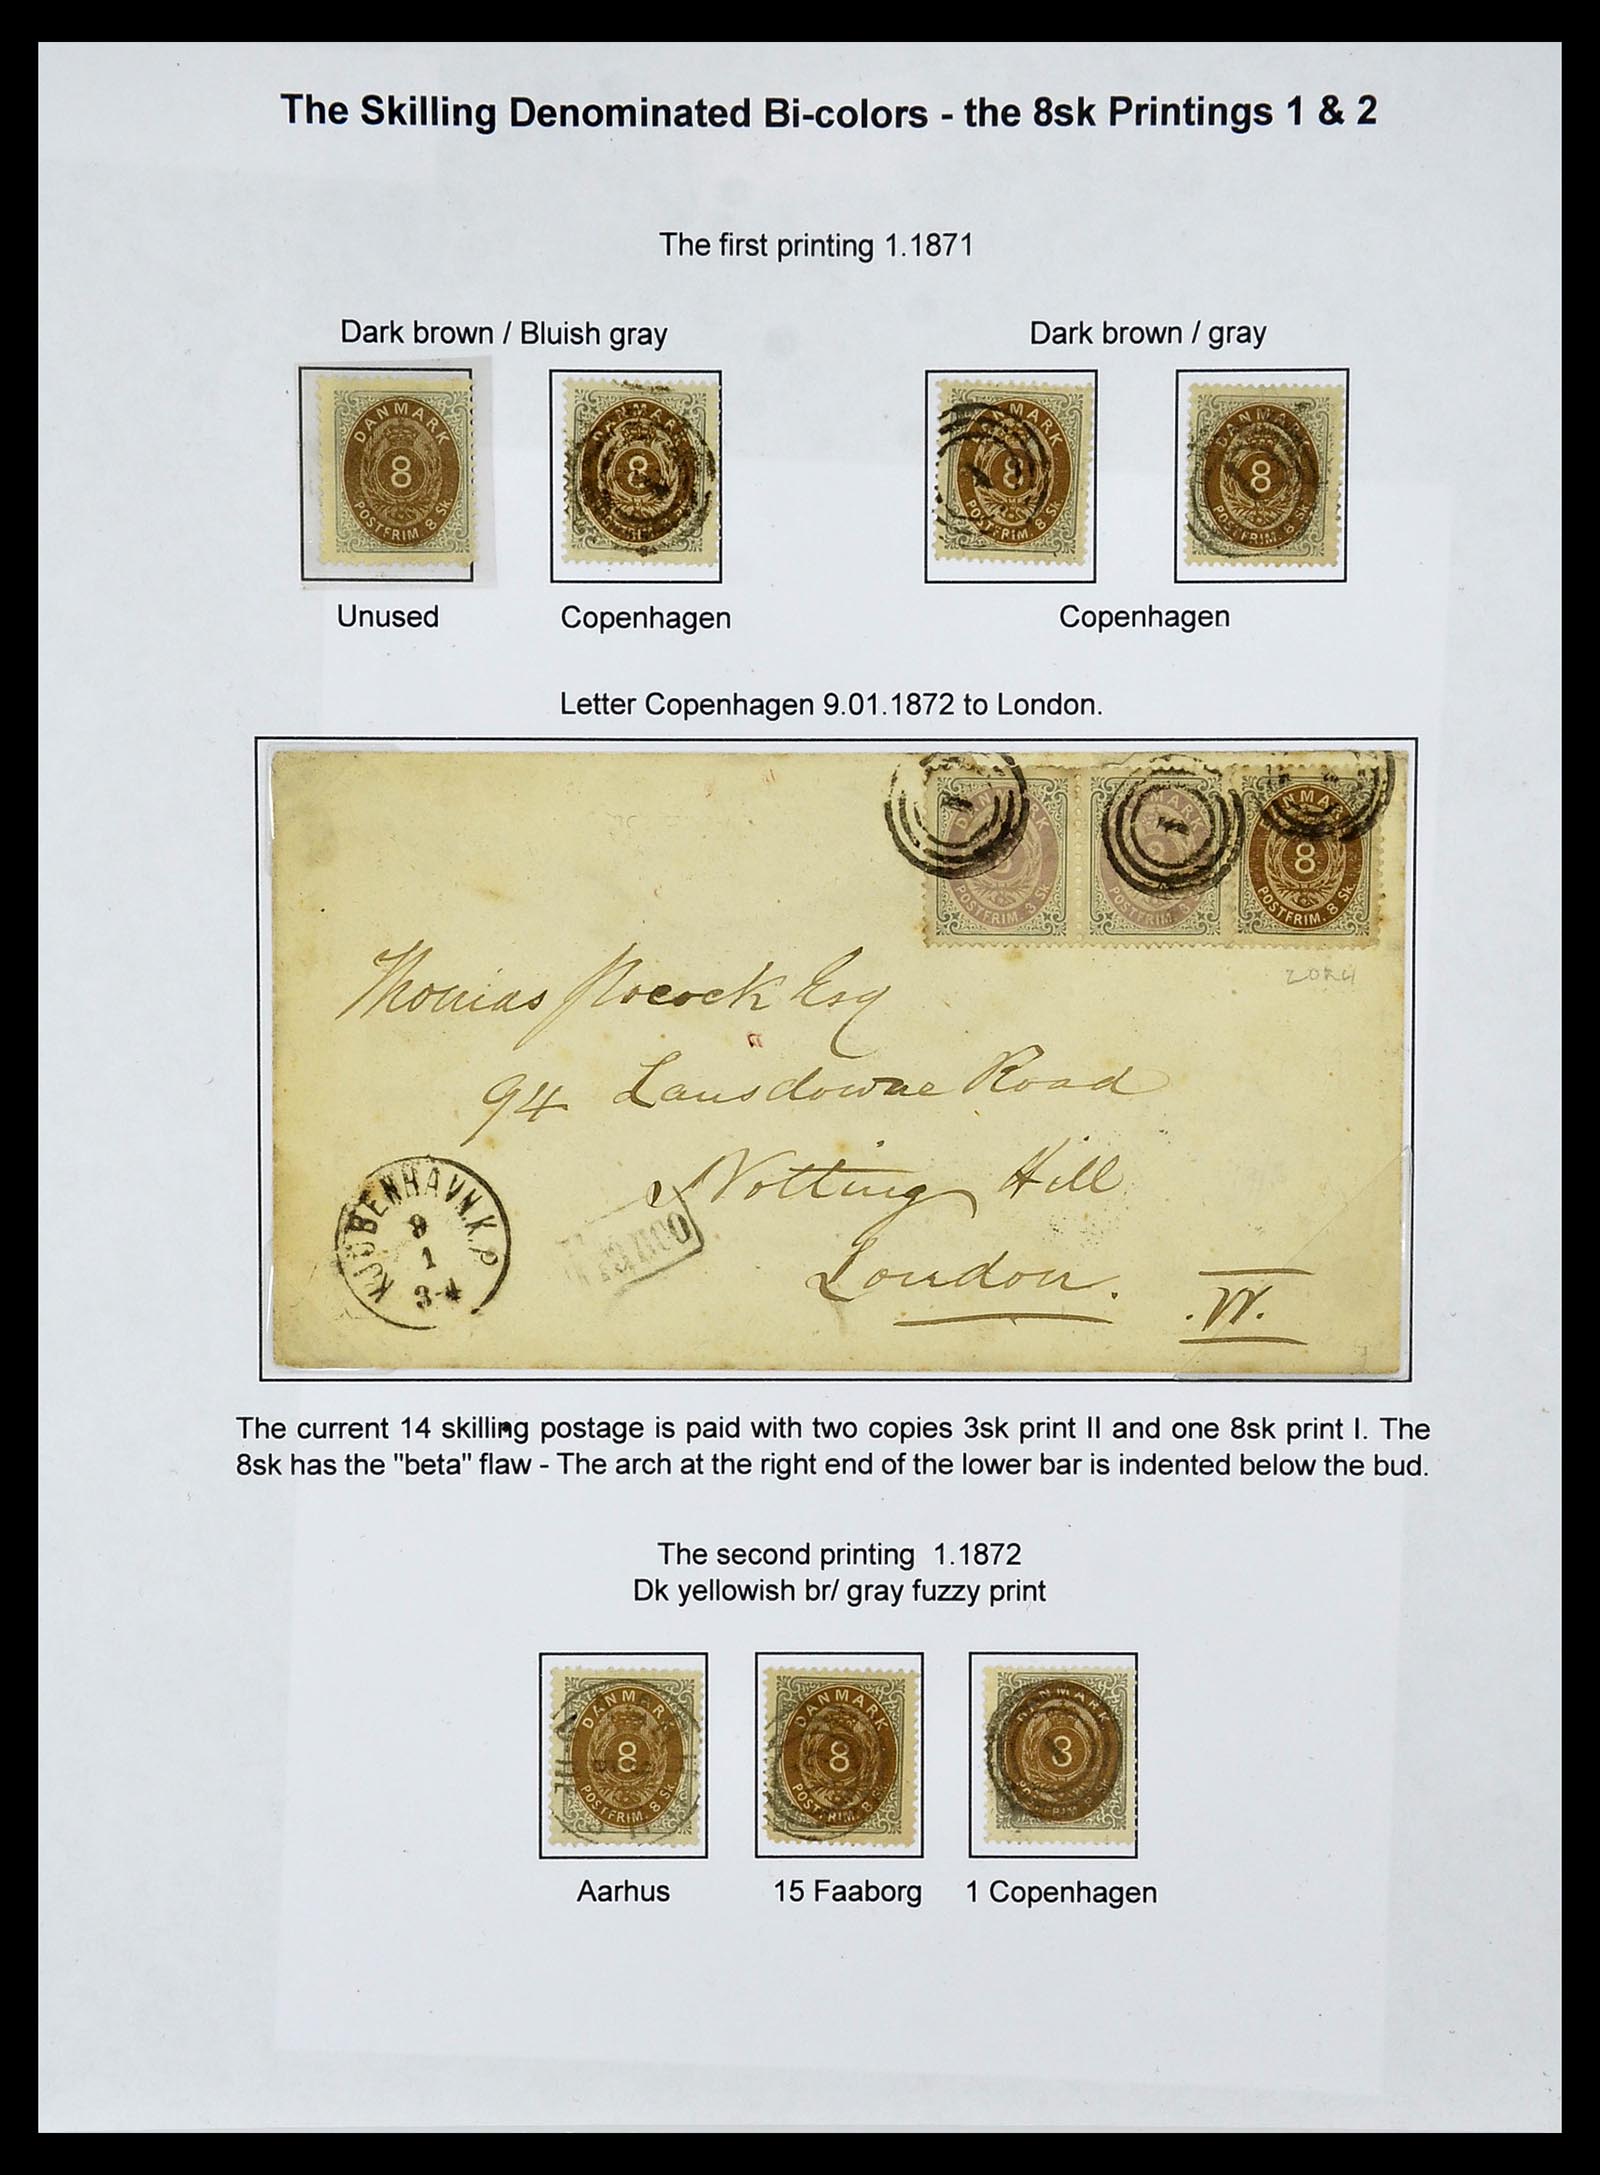 The Skilling Denominated Bi-colors - the 8sk Printings 1 & 2
The first printing 1.1871
Dark brown / Bluish gray
Dark brown / gray
DANMARK
8
POSTFRIM. 8 Sk
DANMARK
8
DANMARK
8
POSTFRIM. 8 Sk
DANMARK
8
POSTFRIM. 8 Sk
Unused
Copenhagen
Copenhagen
Letter Copenhagen 9.01.1872 to London.
1
POSTFRIM. 3 Sk
1
POSTFRIM. 3
8
POSTFRIM. 8 Sk
Thomas Pocock Esq
94 Lansdowne Road
Notting Hill
London.
W.
KJØBENHAVN.K.P
9
1
3-4
Franco
The current 14 skilling postage is paid with two copies 3sk print II and one 8sk print I. The
8sk has the "beta" flaw - The arch at the right end of the lower bar is indented below the bud.
The second printing 1.1872
Dk yellowish br/ gray fuzzy print
DANMARK
8
POSTFRIM. 8 Sk
DANMARK
8
POSTFRIM. 8 Sk
DANMARK
Aarhus
15 Faaborg
1 Copenhagen